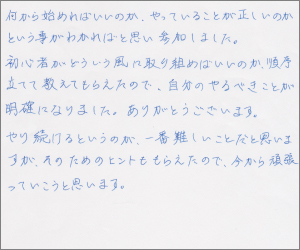 何から始めればいいのか、やっていることが正しいのか
という事がわかればと思い参加しました。
初心者がどういう風に取り組めばいいのか、順序
立てて教えてもらえたので、自分のやるべきことが
明確になりました。ありがとうございます。
やり続けるというのが、一番難しいことだと思いま
すが、そのためのヒントももらえたので、今から頑張
っていこうと思います。